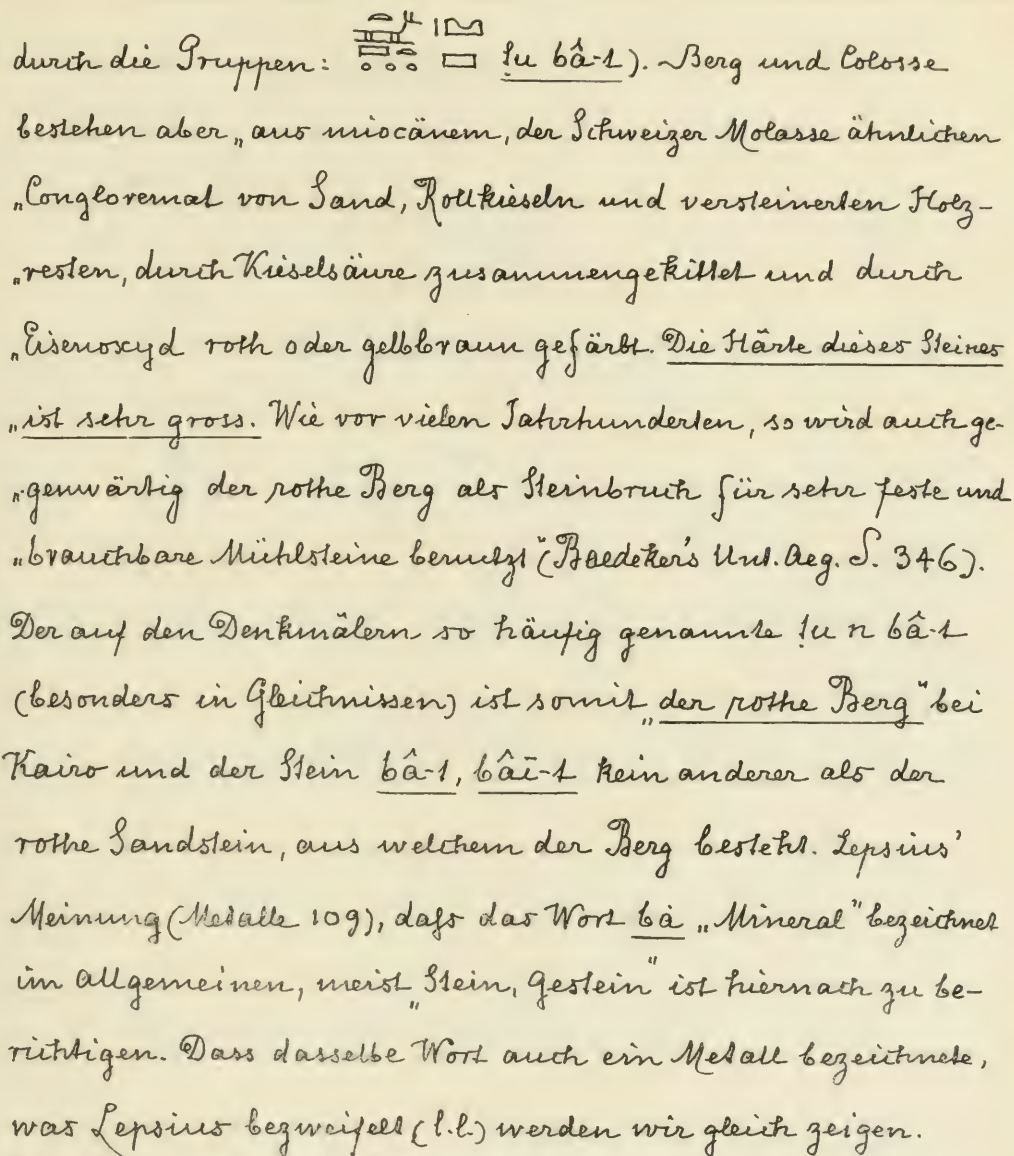 durch die Gruppen: ṭu bâ-t). Berg und Colosse
bestehen aber „aus miocänem, der Schweizer Molasse ähnlichen
„Congloremat von Sand, Rollkieseln und versteinerten Holz-
„resten, durch Kieselsäure zusammengekittet und durch
„Eisenoxyd roth oder gelbbraun gefärbt. Die Härte dieses Steines
„ist sehr gross. Wie vor vielen Jahrhunderten, so wird auch ge-
„genwärtig der rothe Berg als Steinbruch für sehr feste und
„brauchbare Mühlsteine benutzt" (Baedeker's Unt. Aeg. S. 346).
Der auf den Denkmälern so häufig genannte ṭu n bâ-t
(besonders in Gleichnissen) ist somit „der rothe Berg" bei
Kairo und der Stein bâ-t, bâī-t kein anderer als der
rothe Sandstein, aus welchem der Berg besteht. Lepsius'
Meinung (Metalle 109), daſs das Wort bà „Mineral" bezeichnet
im allgemeinen, meist „Stein, Gestein" ist hiernach zu be-
richtigen. Dass dasselbe Wort auch ein Metall bezeichnete,
was Lepsius bezweifelt (l.l.) werden wir gleich zeigen.